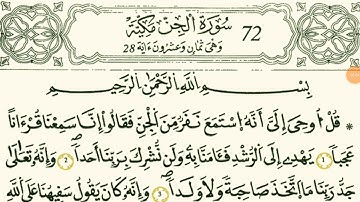 سُورَةُ الْجِنِّ مَكِّيَّةٌ 72
وَهِيَ ثَمَانٍ وَعِشْرُونَ ءَايَةً 28
بِسْمِ اللَّهِ الرَّحْمَٰنِ الرَّحِيمِ
* قُلْ اُوحِيَ إِلَيَّ أَنَّهُ اُ۪سْتَمَعَ نَفَرٌ مِّنَ اَ۬لْجِنِّ فَقَالُوٓاْ إِنَّا سَمِعْنَا قُرْءَاناً
عَجَباً 1 يَهْدِےٓ إِلَى اَ۬لرُّشْدِ فَـَٔامَنَّا بِهِۦ وَلَن نُّشْرِكَ بِرَبِّنَآ أَحَداً 2 وَإِنَّهُۥ تَعَٰلَىٰ
جَدُّ رَبِّنَا مَا اَ۪تَّخَذَ صَٰحِبَةً وَلَا وَلَداً 3 وَإِنَّهُۥ كَانَ يَقُولُ سَفِيهُنَا عَلَى اَ۬للَّهِ